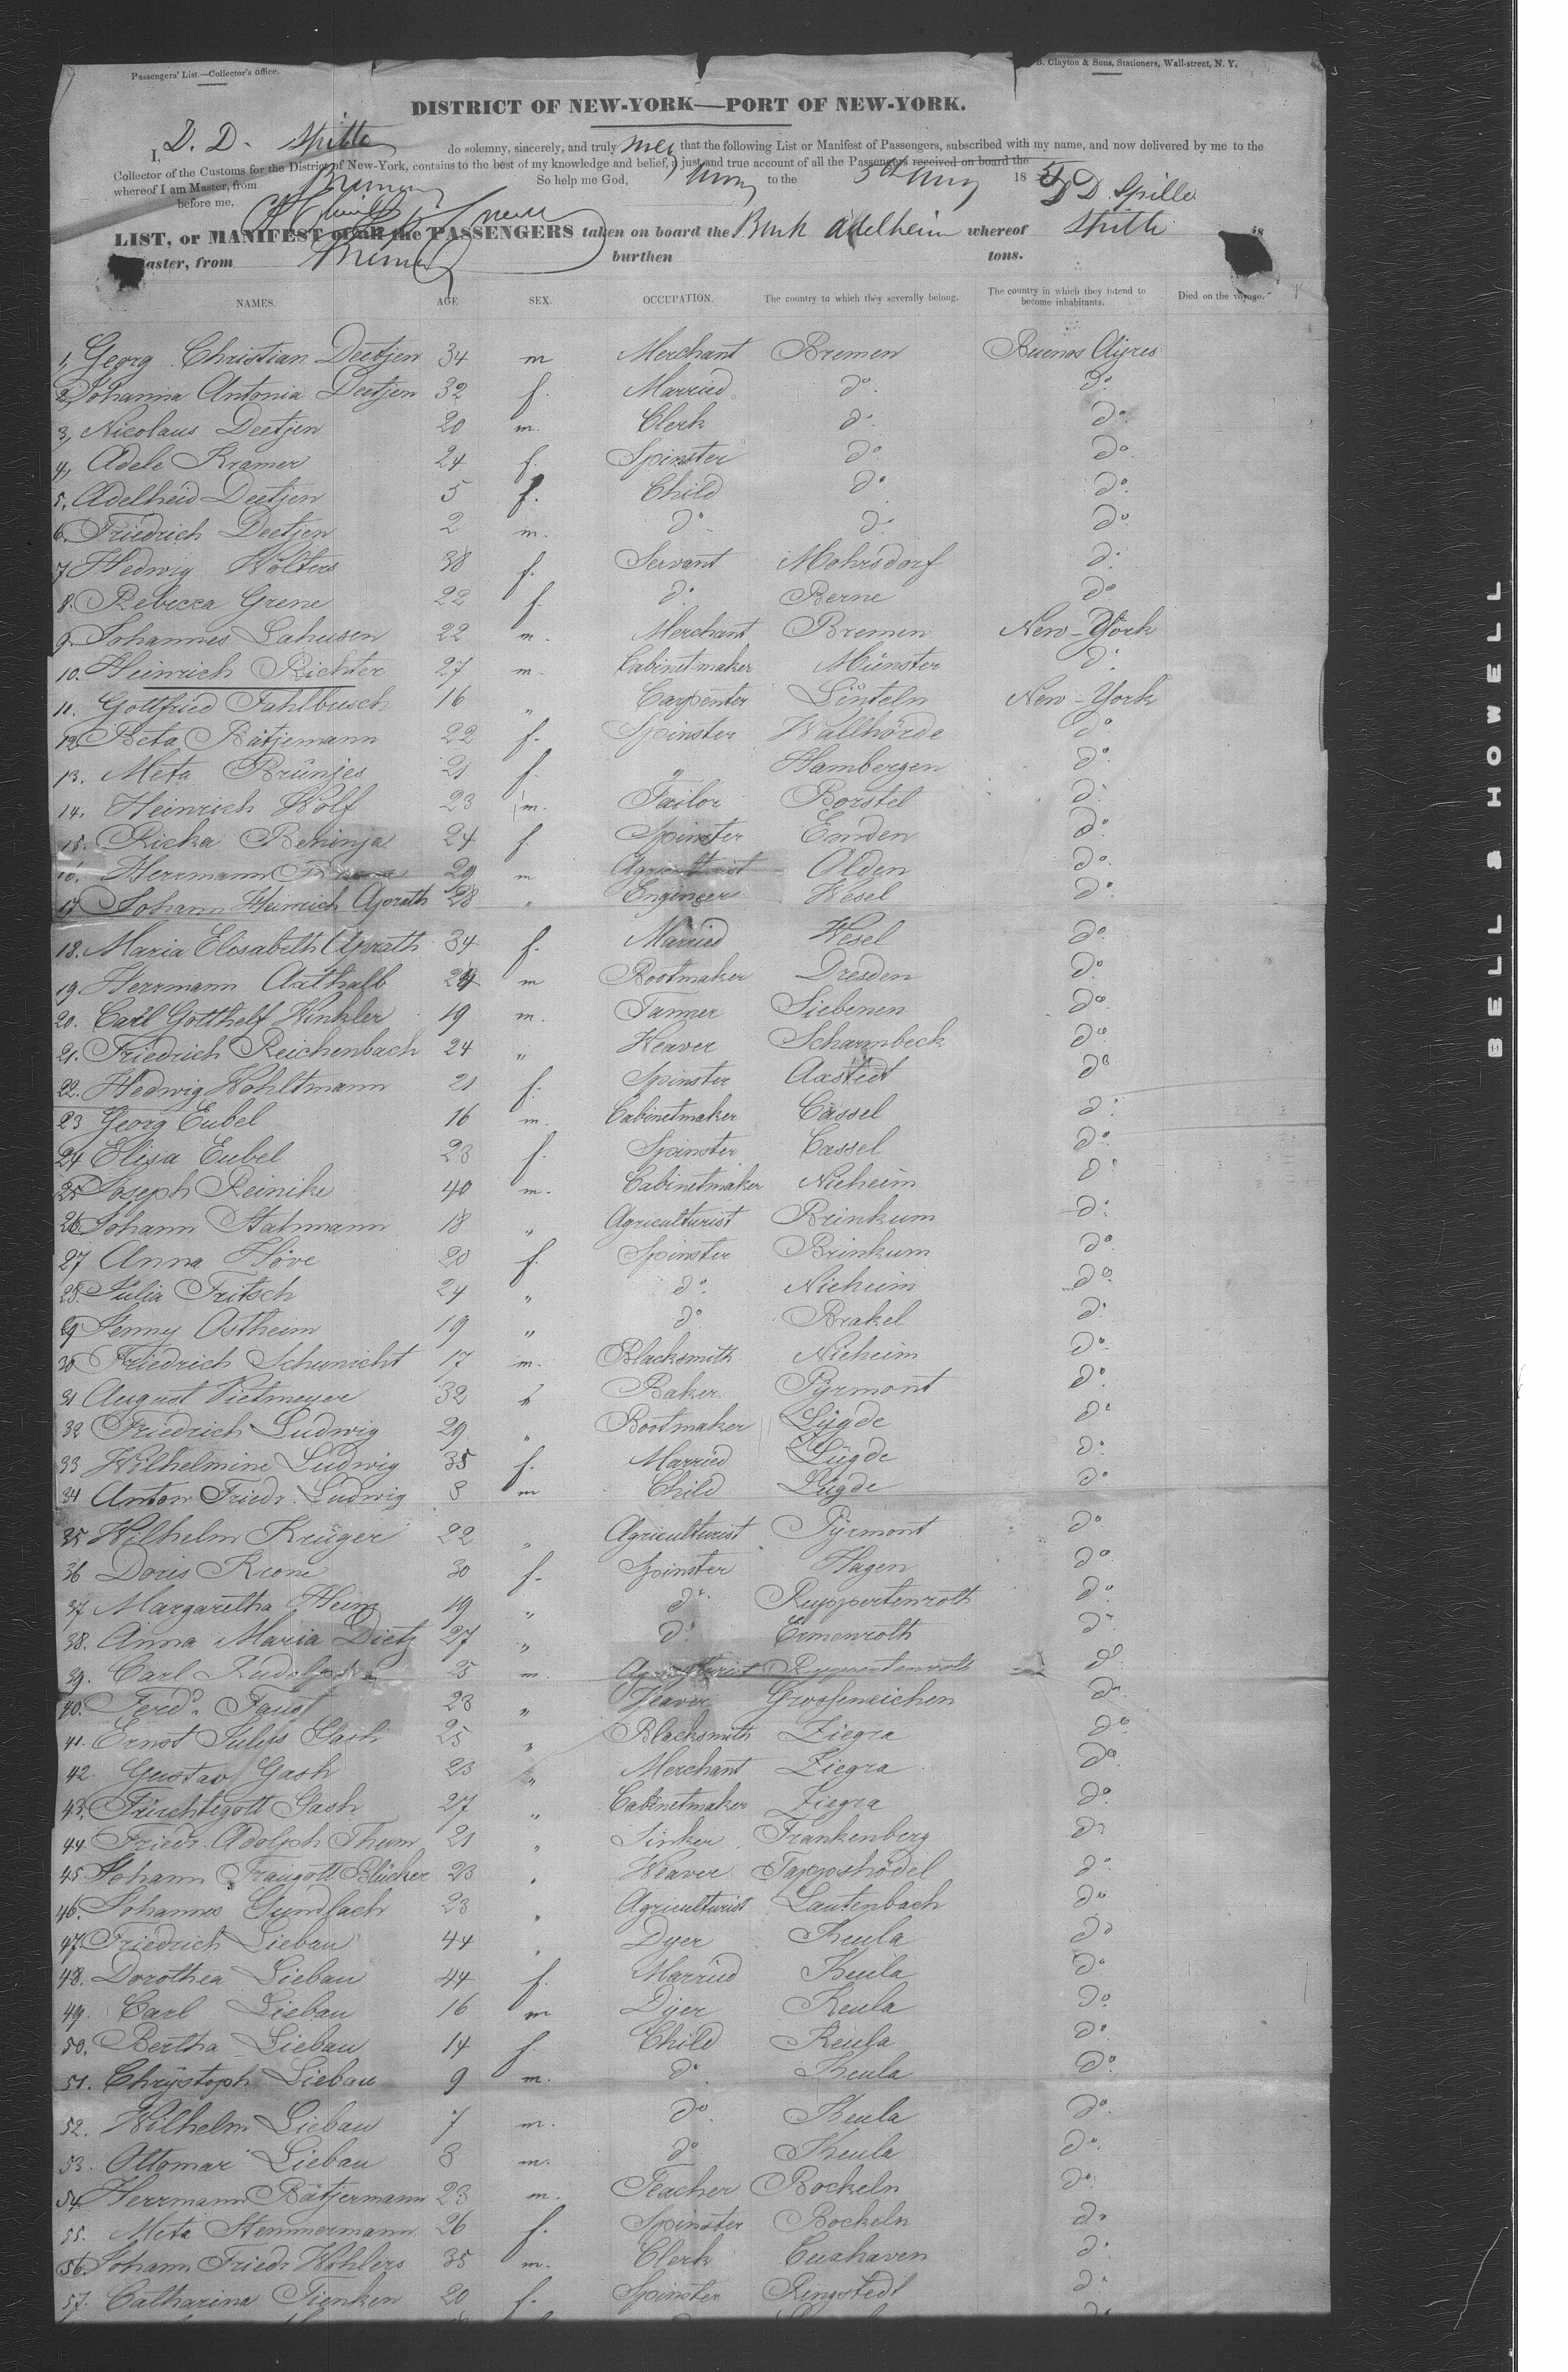 Passengers' List.—Collector's office.
B. Clayton & Sons, Stationers, Wall-street, N. Y.
DISTRICT OF NEW-YORK—PORT OF NEW-YORK.
I, D. D. Spille do solemny, sincerely, and truly that the following List or Manifest of Passengers, subscribed with my name, and now delivered by me to the
Collector of the Customs for the District of New-York, contains to the best of my knowledge and belief, a just and true account of all the Passengers received on board the
whereof I am Master, from Bremen So help me God, to the 18 D D Spille
before me,
LIST, or MANIFEST of all the PASSENGERS taken on board the Bark Adelheim whereof Spille is
Master, from Bremen burthen tons.
NAMES. AGE SEX. OCCUPATION. The country to which they severally belong. The country in which they intend to become inhabitants. Died on the voyage.
1, Georg Christian Deetjen 34 m Merchant Bremen Buenos Ayres
2, Johanna Antonia Deetjen 32 f. Married do. do.
3, Nicolaus Deetjen 20 m. Clerk do. do.
4, Adele Kramer 24 f. Spinster do do.
5, Adelheid Deetjen 5 f. Child do do.
6. Friedrich Deetjen 2 m. do do. do.
7 Hedwig Wolters 38 f. Servant Mohrsdorf do.
8. Rebecca Grene 22 f. do. Berne do.
9. Johannes Lahusen 22 m. Merchant Bremen New-York
10. Heinrich Richter 27 m. Cabinetmaker Münster do.
11. Gottfried Fahlbusch 16 " Carpenter Linteln New-York
12. Beta Bätjemann 22 f. Spinster Wallhörde do.
13. Meta Brünjes 21 f. " Hambergen do.
14. Heinrich Wolf 23 m. Tailor Borstel do.
15. Ricka Beninja 24 f. Spinster Emden do.
16. Herrmann 29 m Agriculturist Olden do.
17 Johann Heinrich Aprath 28 " Engineer Wesel do.
18. Maria Elisabeth Aprath 34 f. Married Wesel do.
19. Herrmann Axthalb 24 m Bootmaker Dresden do.
20. Carl Gotthelf Winkler 19 m. Tanner Siebenen do.
21. Friedrich Reichenbach 24 " Weaver Scharmbeck do
22. Hedwig Wohltmann 21 f. Spinster Axstedt do
23 Georg Eubel 16 m. Cabinetmaker Cassel do.
24 Elisa Eubel 23 f. Spinster Cassel do.
25 Joseph Reinike 40 m. Cabinetmaker Nieheim do.
26 Johann Stahmann 18 " Agriculturist Brinkum do.
27 Anna Höve 20 f. Spinster Brinkum do.
28. Julia Fritsch 24 " do. Nieheim do.
29 Jenny Ostheim 19 " do Brakel do.
30 Friedrich Schunicht 17 m. Blacksmith Nieheim do.
31 August Vietmeyer 32 " Baker Pyrmont do.
32 Friedrich Ludwig 29 " Bootmaker Lügde do.
33 Wilhelmine Ludwig 35 f. Married Lügde do.
34 Anton Friedr. Ludwig 3 m Child Lügde do
35 Wilhelm Krüger 22 " Agriculturist Pyrmont do.
36 Doris Krone 30 f. Spinster Hagen do.
37. Margaretha Heinz 19 " do. Ruppertenroth do.
38. Anna Maria Dietz 27 " do. Ermenroth do.
39. Carl Rudolph 25 m. Agriculturist Ruppertenroth do
40. Ferdd. Faust 23 " Weaver Grosseneichen do.
41. Ernst Julius Gash 25 " Blacksmith Ziegra do
42. Gustav Gash 23 " Merchant Ziegra do.
43. Früchtegott Gash 27 " Cabinetmaker Ziegra do.
44 Friedr. Adolph Thum 21 " Tinker Frankenberg do
45 Johann Traugott Blücher 23 " Weaver Tappshödel do
46. Johannes Gundlach 23 " Agriculturist Lautenbach do
47. Friedrich Liebau 44 " Dyer Keula do
48. Dorothea Liebau 44 f. Married Keula do.
49. Carl Liebau 16 m Dyer Keula do
50. Bertha Liebau 14 f. Child Keula do.
51. Chrystoph Liebau 9 m. do. Keula do.
52. Wilhelm Liebau 7 m. do. Keula do.
53. Ottomar Liebau 3 m. do Keula do.
54 Herrmann Bätjermann 23 m. Teacher Bockeln do
55. Meta Stemmermann 26 f. Spinster Bockeln do
56. Johann Friedr. Wohlers 35 m. Clerk Cuxhaven do.
57. Catharina Tienken 20 f. Spinster Ringstedt do.
BELL & HOWELL